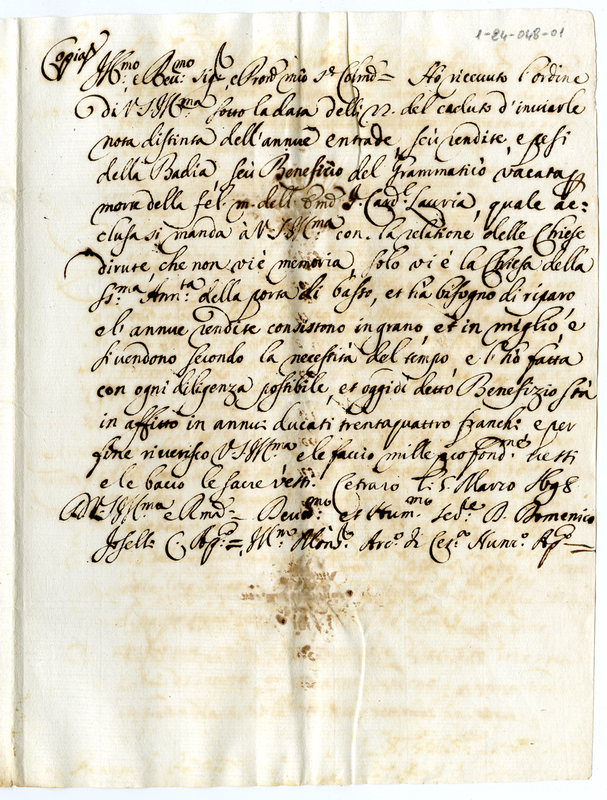 1-24-048-01
Copia Ill.mo e Rev.mo Sig.r e Pron̄ mio S.r Col.mo = Hò ricevuto l'ordine
di V.S.Ill.ma sotto la data delli 22. del caduto d'inviarle
nota distinta dell'annue entrade, seù rendite, e pesi
della Badia, seù Benefizio del Grammaticò, vacata p
morte della fel: m. dell' Em.o S. Card.l Lauria, quale ac=
clusa si manda à V.S.Ill.ma con la relatione delle Chiese
dirute, che non vi è memoria, solo vi è la Chiesa della
SS.ma Ann.ta della porta di basso, et hà bisogno di riparo
e l'annue rendite consistono in grano, et in miglio, e
si vendono secondo la necessità del tempo e l'hò fatta
con ogni diligenza possibile, et oggidì detto Benefizio stà
in affitto in annui ducati trentaquattro franchi: e per
fine riverisco V.S.Ill.ma e le faccio mille profond.me
e le bacio le sacre vesti. Cetraro li 5 Marzo 1698
D. V.S.Ill.ma e R.ma = Dev.mo et Hum.mo Ser.e D. Domenico
Ill.mo Mons.r Arc.o di Nunt.o Ap.o =